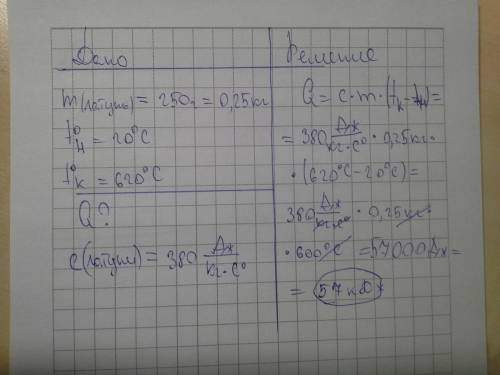 Дано
m(латунь) = 250г = 0,25кг
t°н = 20°С
t°к = 620°С
Q?
c(латуни) = 380 Дж/кг·С°
Решение
Q = c·m·(tк-tн) =
= 380 Дж/кг·С° · 0,25кг·
·(620°С-20°С) =
380 Дж/кг·С° · 0,25кг·
·600°С = 57000Дж =
= 57кДж